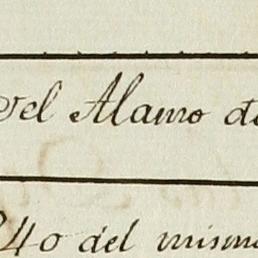 del Alamo de
240 del mismo